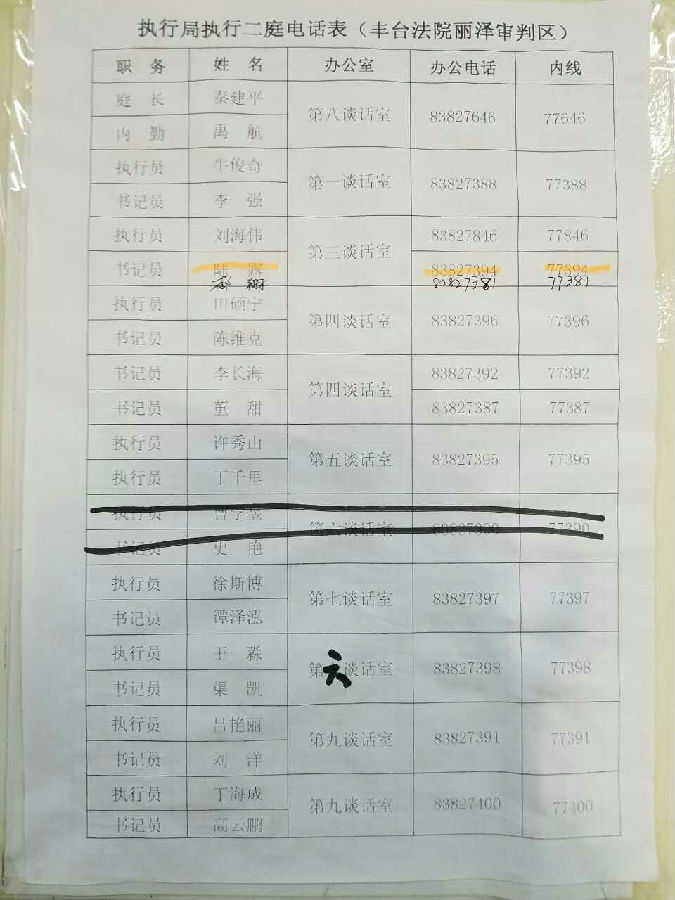 执行局执行二庭电话表（丰台法院丽泽审判区）
职 务 姓 名 办公室 办公电话 内线
庭 长 秦建平 第八谈话室 83827646 77646
内 勤 禹 航
执行员 牛俊奇 第一谈话室 83827388 77388
书记员 李 强
执行员 刘海伟 第三谈话室 83827846 77846
书记员 陆 露 83827394 77394
翔 83827381 77381
执行员 田硕宁 第四谈话室 83827396 77396
书记员 陈维克
书记员 李长海 第四谈话室 83827392 77392
书记员 董 甜 83827387 77387
执行员 许秀山 第五谈话室 83827395 77395
执行员 丁千里
执行员 第六谈话室 83827390 77390
书记员 史 艳
执行员 徐斯博 第七谈话室 83827397 77397
书记员 谭泽泓
执行员 王 淼 第六谈话室 83827398 77398
书记员 渠 凯
执行员 吕艳丽 第九谈话室 83827391 77391
书记员 刘 洋
执行员 丁海成 第九谈话室 83827400 77400
书记员 高云鹏